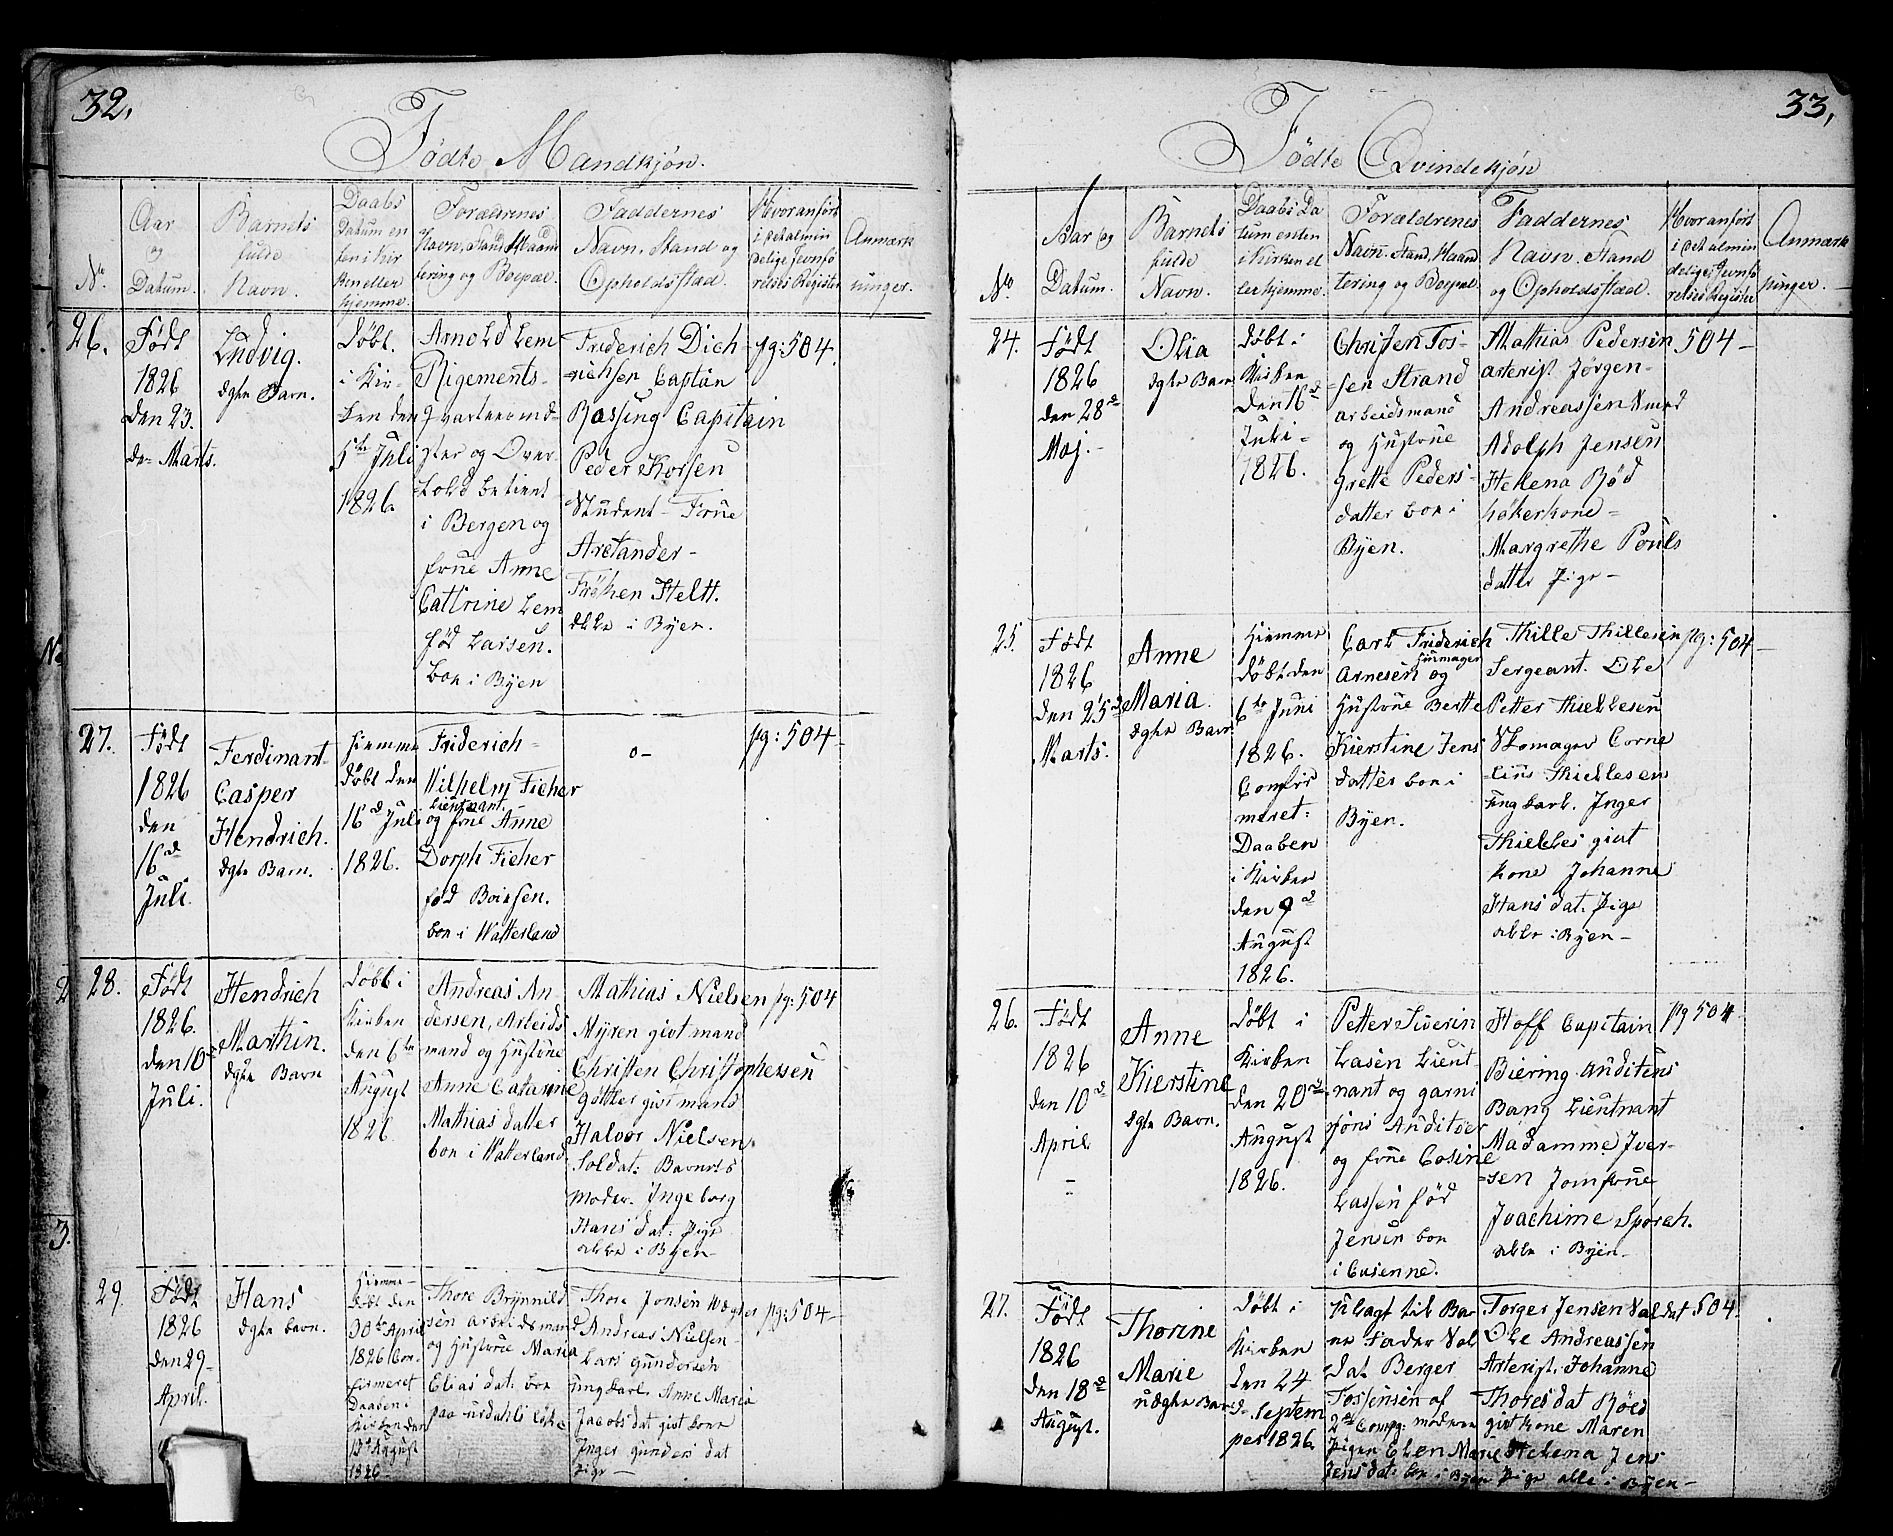 32.
Födte Mandkjön.
No.
Aar
og
Datum.
Barnets
fulde
Navn.
Daabs
Datum en
ten i Kir
ken eller
hjemme.
Forældrenes
Navn, Stand, Haand
tering og Boepæl.
Faddernes
Navn, Stand og
Opholdsstad.
Hvor anført
i det almin
delige Jevnfö
relses Register
Anmærk
ninger.
26.
Födt
1826
den 23.
de Marts.
Ludvig.
ægte Barn.
döbt.
i Kir-
ken den
5te Juli
1826.
Arnold Lem
Rigements-
qvarteermd-
ster og Over
told betient
i Bergen og
frue Anne
Cattrine Lem
föd Larsen.
boe i Byen
Friderich Dich-
richsen Captän
Bassing Capitain
Peder Korsen
Student- Frue
Arctander-
Fröken Heltt.
alle i Byen.
pg: 504.
27.
Födt
1826
den
16d
Juli
Ferdinant-
Casper
Hendrich.
ægte Barn.
hiemme
döbt den
16d Juli
1826.
Friderich-
Wilhelm Ficher
Lieutnant.
og frue Anne
Dorph Ficher
föd Boiesen.
boe i Watterland
o-
pg: 504-
28.
Födt
1826.
den 10d
Juli.
Hendrich
Marthin.
ægte Barn
döbt i
Kirken
den 6te
August
1826.
Andreas An
dersen, Arbeids
mand og Hustrue
Anne Catarine
Mathias datter
boe i Watterland
Mathias Nielsen
Myren givt mand
Christen Christophersen
gotter givt mand
Halvor Nielsen
Soldat: Barnets
moder. Ingeborg
Hans dat: Pige
alle i Byen-
pg: 504
29.
Födt
1826
den 29-
April.
Hans
ægte barn.
hiemme-
döbt den
30te April
1826 Con-
firmeret
Daaben i
Kirken den
13de August
1826-
Thore Brynnild
sen arbeidsmand
og Hustrue Maria
Elias dat: boe
paa urdahls löke
Thore Jonsen Wægter
Andreas Nielsen-
Lars gundersen
ung karl. Anne Maria
Jacobs dat givt kone
Inger gunders dat
Pige-
pg: 504-
33.
Födte Qvindekjön
No
Aar og
Datum.
Barnets
fulde
Navn.
Daabs Da
tum enten
i Kirken el
ler hjemme.
Forældrenes
Navn, Stand, Haand
tering og Boepæl.
Faddernes
Navn. Stand
og Opholdsstad.
Hvor anført
i det almin
delige Jevnfö
relses Register
Anmærk
ninger.
24.
Födt
1826
den 28de
Maj.-
Olia
ægte Barn
döbt i
Kirken
den 16d
Juli-
1826.
Christen Tos-
sen Strand
arbeidsmand
og Hustrue
Grette Peders-
datter boe i
Byen.
Mathias Pedersen
arterist Jörgen-
Andreassen Smed
Adolph Jensen
Helena Röd
hökerkone-
Margrethe Pouls
datter Pige-
504-
25.
Födt
1826
den 25d
Marts.
Anne
Maria.
ægte Barn
hiemme
döbt den
6te Juni
1826.
Comfir
meret:
Daaben
i Kirken
den 9d
August
1826.
Carl Friderich
Huusmager
Arnesen og
Hustrue Berthe
Kierstine Jens
datter boe i
Byen.
Thille Thillesen
Sergeant. Ole
Petter Thiellesen
Skomager Corne
lius Thiellesen
ung karl. Inger
Thielles givt
kone Johanne
Hans dat. Pige
alle i Byen-
pg: 504-
26.
Födt
1826
den 10d
April.
Anne
Kierstine
ægte Barn.
döbt i
Kirken
den 20de
August
1826.
Petter Siverin
Lasen Lieut-
nant og garni
sons Auditöer
og frue Cosine
Lassen föd
Jensen boe
i Eusenne.
Hoff Capitain
Biering Auditeus
Bang Lieutnant
Madamme Iver-
sen Jomfrue-
Joachime Sporch.
alle i Byen-
pg 504-
27.
Födt
1826
den 18d
August.
Thorine
Marie
uægte Barn
döbt i
Kirken
den 24
d. Septem
per 1826.
Udlagt til Bar
ne Fader Sol
dat Berger
Tossensen af
2det Comp: moderen
Pigen Elen Marie
Jens dat: boe i Byen
Torger Jensen Soldat
Ole Andreassen
Arterist. Johanne
Thores dat Röed
givt kone Maren
Helena Jens
Pige alle i Byen-
504-